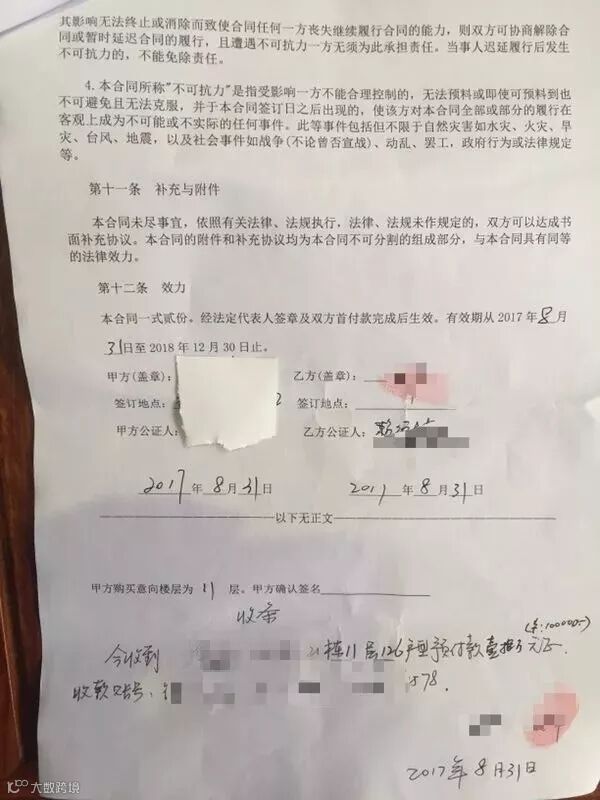 其影响无法终止或消除而致使合同任何一方丧失继续履行合同的能力，则双方可协商解除合
同或暂时延迟合同的履行，且遭遇不可抗力一方无须为此承担责任。当事人迟延履行后发生
不可抗力的，不能免除责任。
4.本合同所称"不可抗力"是指受影响一方不能合理控制的，无法预料或即使可预料到也
不可避免且无法克服，并于本合同签订日之后出现的，使该方对本合同全部或部分的履行在
客观上成为不可能或不实际的任何事件。此等事件包括但不限于自然灾害如水灾、火灾、旱
灾、台风、地震，以及社会事件如战争(不论曾否宣战)、动乱、罢工，政府行为或法律规定
等。
第十一条 补充与附件
本合同未尽事宜，依照有关法律、法规执行，法律、法规未作规定的，双方可以达成书
面补充协议。本合同的附件和补充协议均为本合同不可分割的组成部分，与本合同具有同等
的法律效力。
第十二条 效力
本合同一式贰份。经法定代表人签章及双方首付款完成后生效。有效期从 2017 年 8 月
31 日至 2018 年 12 月 30 日止。
甲方(盖章): 乙方(盖章):
签订地点: 签订地点:
甲方公证人: 乙方公证人:
2017 年 8 月 31 日 2017 年 8 月 31 日
以下无正文
甲方购买意向楼层为 11 层。甲方确认签名
收条
(¥:100000.-)
今收到 栋11层126户型预付款壹拾万元正.
收款账号: 1578.
2017年8月31日
大数跨境